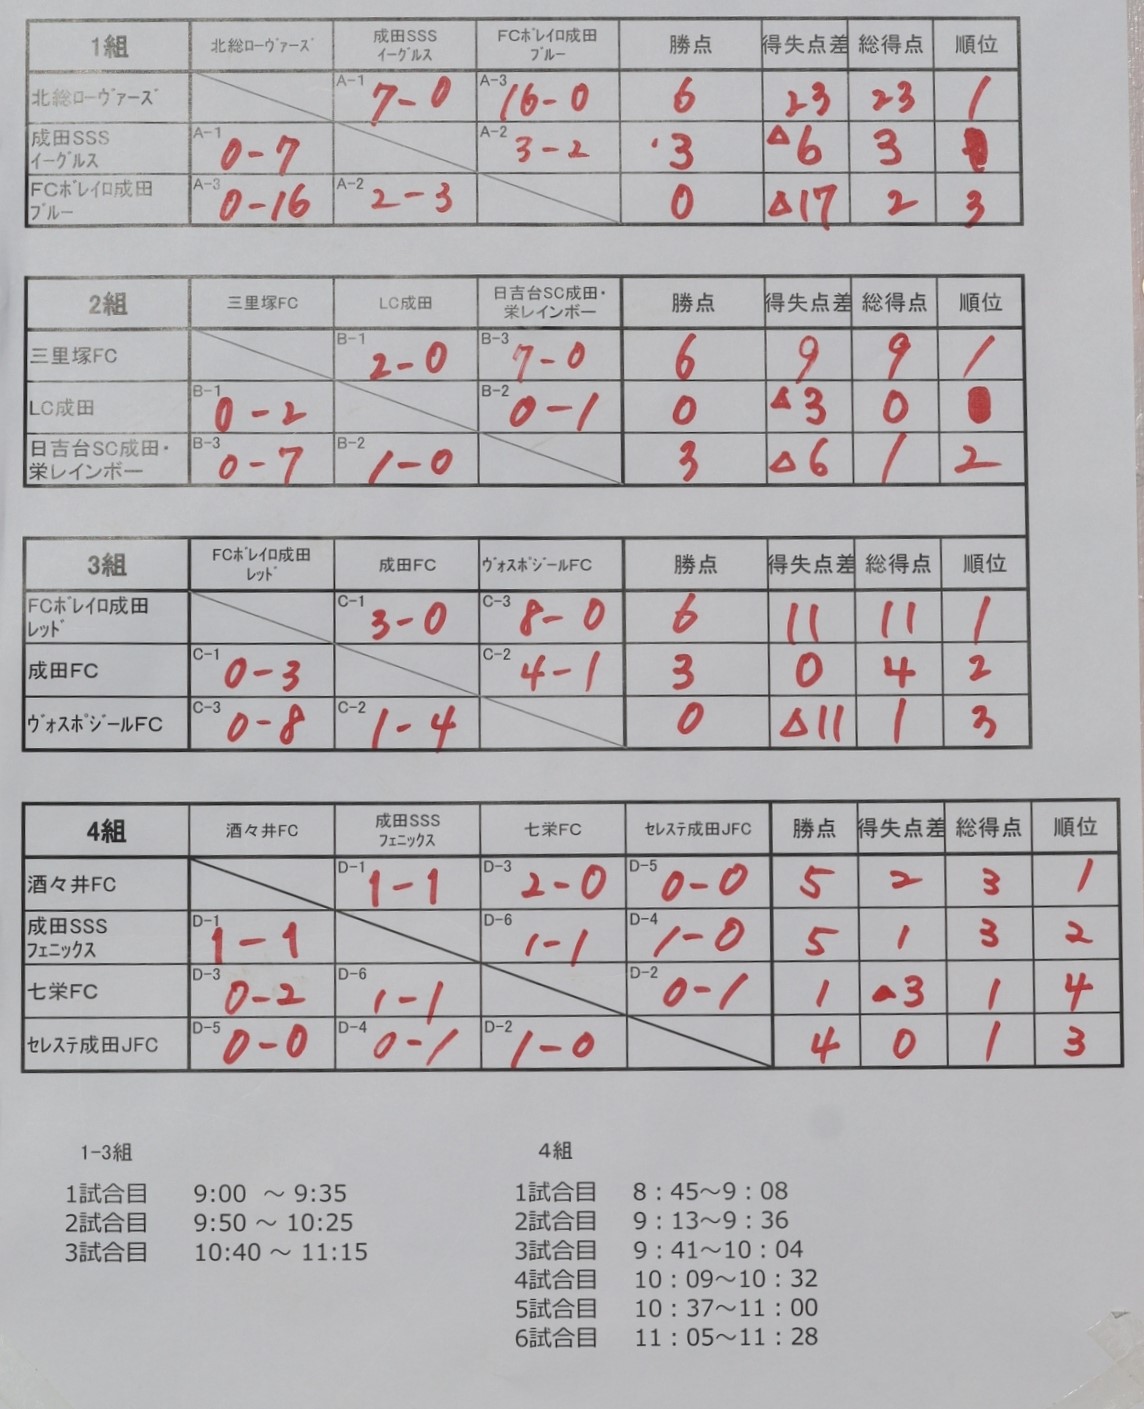 1組 北総ローヴァーズ 成田SSSイーグルス FCボレイロ成田ブルー 勝点 得失点差 総得点 順位
北総ローヴァーズ A-1 7-0 A-3 16-0 6 23 23 1
成田SSSイーグルス A-1 0-7 A-2 3-2 3 △6 3
FCボレイロ成田ブルー A-3 0-16 A-2 2-3 0 △17 2 3
2組 三里塚FC LC成田 日吉台SC成田・栄レインボー 勝点 得失点差 総得点 順位
三里塚FC B-1 2-0 B-3 7-0 6 9 9 1
LC成田 B-1 0-2 B-2 0-1 0 △3 0
日吉台SC成田・栄レインボー B-3 0-7 B-2 1-0 3 △6 1 2
3組 FCボレイロ成田レッド 成田FC ヴォスポジールFC 勝点 得失点差 総得点 順位
FCボレイロ成田レッド C-1 3-0 C-3 8-0 6 11 11 1
成田FC C-1 0-3 C-2 4-1 3 0 4 2
ヴォスポジールFC C-3 0-8 C-2 1-4 0 △11 1 3
4組 酒々井FC 成田SSSフェニックス 七栄FC セレステ成田JFC 勝点 得失点差 総得点 順位
酒々井FC D-1 1-1 D-3 2-0 D-5 0-0 5 2 3 1
成田SSSフェニックス D-1 1-1 D-6 1-1 D-4 1-0 5 1 3 2
七栄FC D-3 0-2 D-6 1-1 D-2 0-1 1 ▲3 1 4
セレステ成田JFC D-5 0-0 D-4 0-1 D-2 1-0 4 0 1 3
1-3組
1試合目 9:00 ～ 9:35
2試合目 9:50 ～ 10:25
3試合目 10:40 ～ 11:15
4組
1試合目 8：45～9：08
2試合目 9：13～9：36
3試合目 9：41～10：04
4試合目 10：09～10：32
5試合目 10：37～11：00
6試合目 11：05～11：28